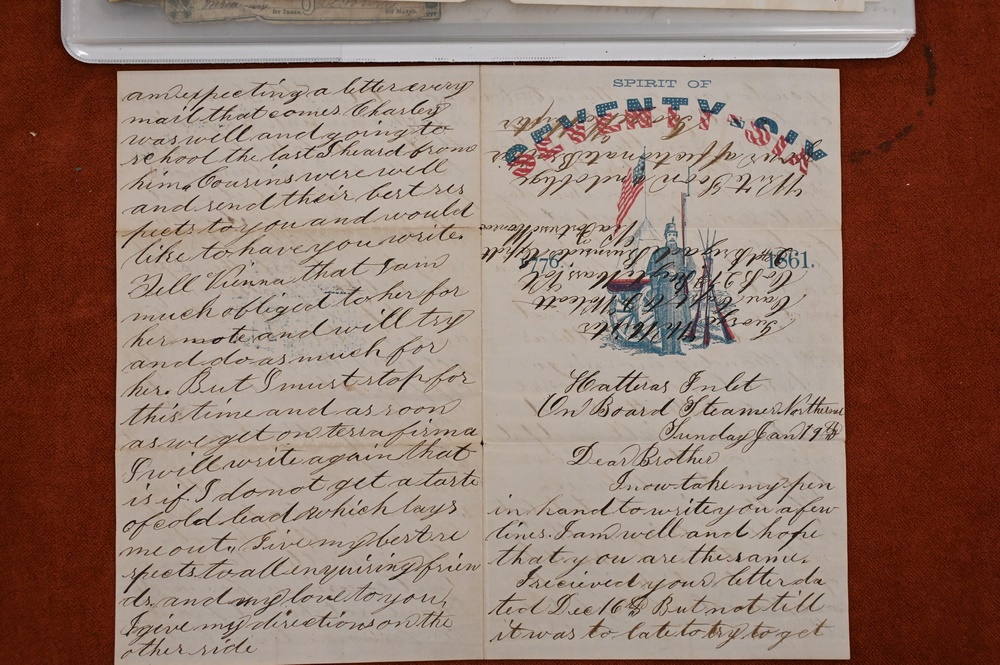 for Treas.
for Maj'r.
am expecting a letter every
mail that comes Charley
was will and going to
school the last I heard from
him. Cousins were well
and send their best res
pects to you and would
like to have you write.
Tell Vienna that I am
much obliged to her for
her mote and will try
and do as much for
her. But I must stop for
this time and as soon
as we get on terrafirma
I will write again that
is if I do not get a taste
of cold lead which lays
me out. Give my best re
spects to all enquiring frien
ds. and my love to you,
I give my directions on the
other side
SPIRIT OF
SEVENTY-SIX
1776. 1861.
Hatteras Inlet
On Board Steamer Northerner
Sunday Jan 19th
Dear Brother
I now take my pen
in hand to write you a few
lines. I am well and hope
that you are the same.
I recieved your letter da
ted Dec 16th But not till
it was to late to try to get
George
Care Capt
Co B 21st Reg't Mass Vol
2nd Brigade Burnside's Expdt
Write Soon and oblige
Your affectionate Brother